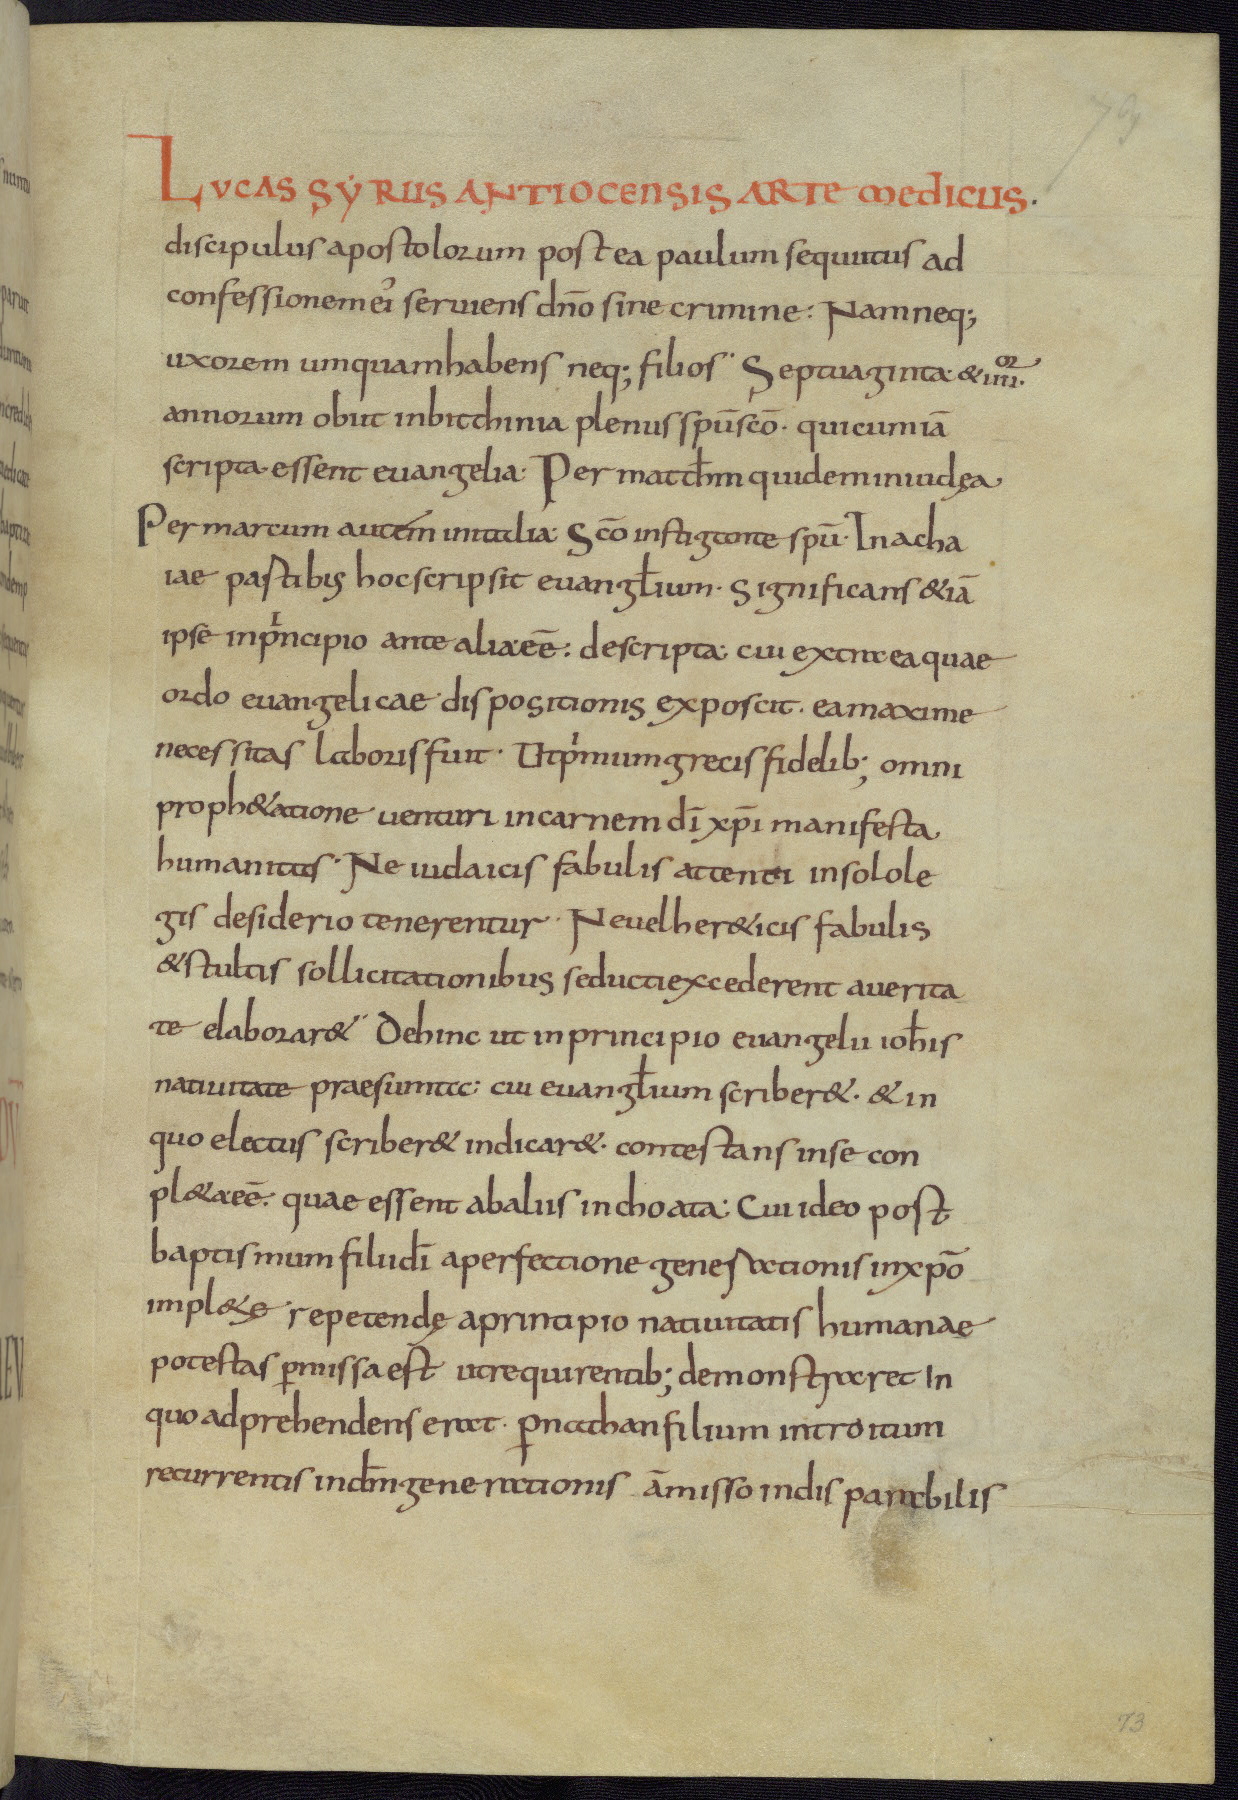 79
LVCAS SYRUS ANTIOCENSIS ARTE MEDICUS.
discipulus apostolorum postea paulum sequutus ad
confessionem ei' seruiens dn̄o sine crimine: Nam neq;
uxorem umquam habens neq; filios. Septuaginta & iiii.or
annorum obiit in bitthinia plenus sp̄u sc̄o. qui cum iā
scripta essent euangelia. Per matth̄m quidem in iudęa
Per marcum autem in italia: Sc̄o instigante sp̄u. In acha
iae partibus hoc scripsit euangl̄ium. Significans & iā
ipse in principio ante alia eē: descripta. cui extra ea quae
ordo euangelicae dispositionis exposcit. ea maxime
necessitas laboris fuit. Ut primum grecis fidelib; omni
proph&atione uenturi in carnem dī xp̄i manifesta
humanitas. Ne iudaicis fabulis attenti in solo le
gis desiderio tenerentur. Ne uel her&icis fabulis
& stultis sollicitationibus seducti excederent a uerita
te elaborar& Dehinc ut in principio euangelii ioh̄is
natiuitate praesumta: cui euangl̄ium scriber&. & in
quo electus scriber& indicar&. contestans in se con
pl&a eē. quae essent ab aliis inchoata: Cui ideo post
baptismum filii dī a perfectione generationis in xp̄o
impl&ę. repetendę a principio natiuitatis humanae
potestas p̄missa est ut requirentib; demonstraret In
quo adprehendens erat. p̄ nathan filium introitum
recurrentis in dm̄ generationis āmisso indisparabilis
73